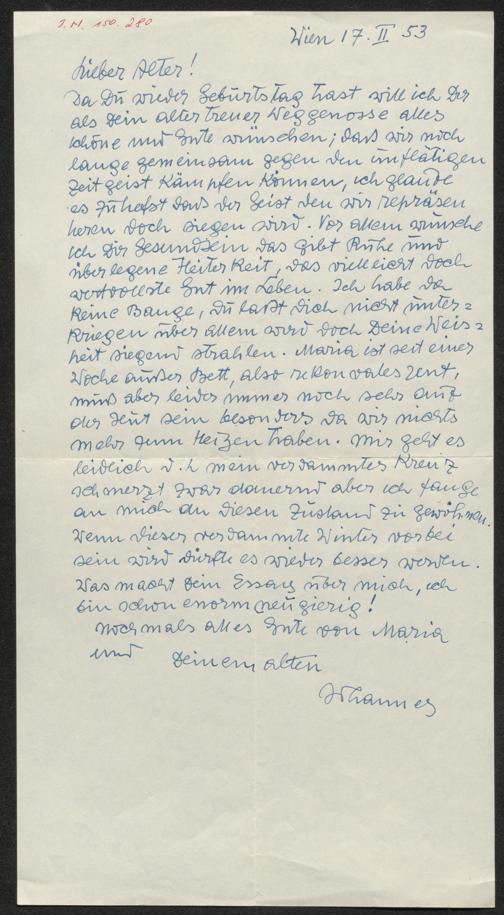 I.N. 150.280
Wien 17. II 53
Lieber Alter!
Da Du wieder Geburtstag hast will ich Dir
als Dein alter treuer Weggenosse alles
schöne und Gute wünschen; daß wir noch
lange gemeinsam gegen den unflätigen
Zeitgeist kämpfen können, ich glaube
es zuhefst daß der Geist den wir repräsen
tieren doch siegen wird. Vor allem wünsche
ich Dir Gesundsein das gibt Ruhe und
überlegene Heiterkeit, das vielleicht doch
wertvollste Gut im Leben. Ich habe da
keine Bange, Du laßt Dich nicht unter=
kriegen über allem wird doch Deine Weis=
heit siegend strahlen. Maria ist seit einer
Woche außer Bett, also rekonvaleszent,
muß aber leider immer noch sehr auf
der Hut sein besonders da wir nichts
mehr zum Heizen haben. Mir geht es
leidlich d.h mein verdammtes Kreuz
schmerzt zwar dauernd aber ich fange
an mich an diesen Zustand zu gewöhnen.
Wenn dieser verdammte Winter vorbei
sein wird dürfte es wieder besser werden.
Was macht Dein Essay über mich, ich
bin schon enorm neugierig!
nochmals alles Gute von Maria
und Deinem alten
Johannes